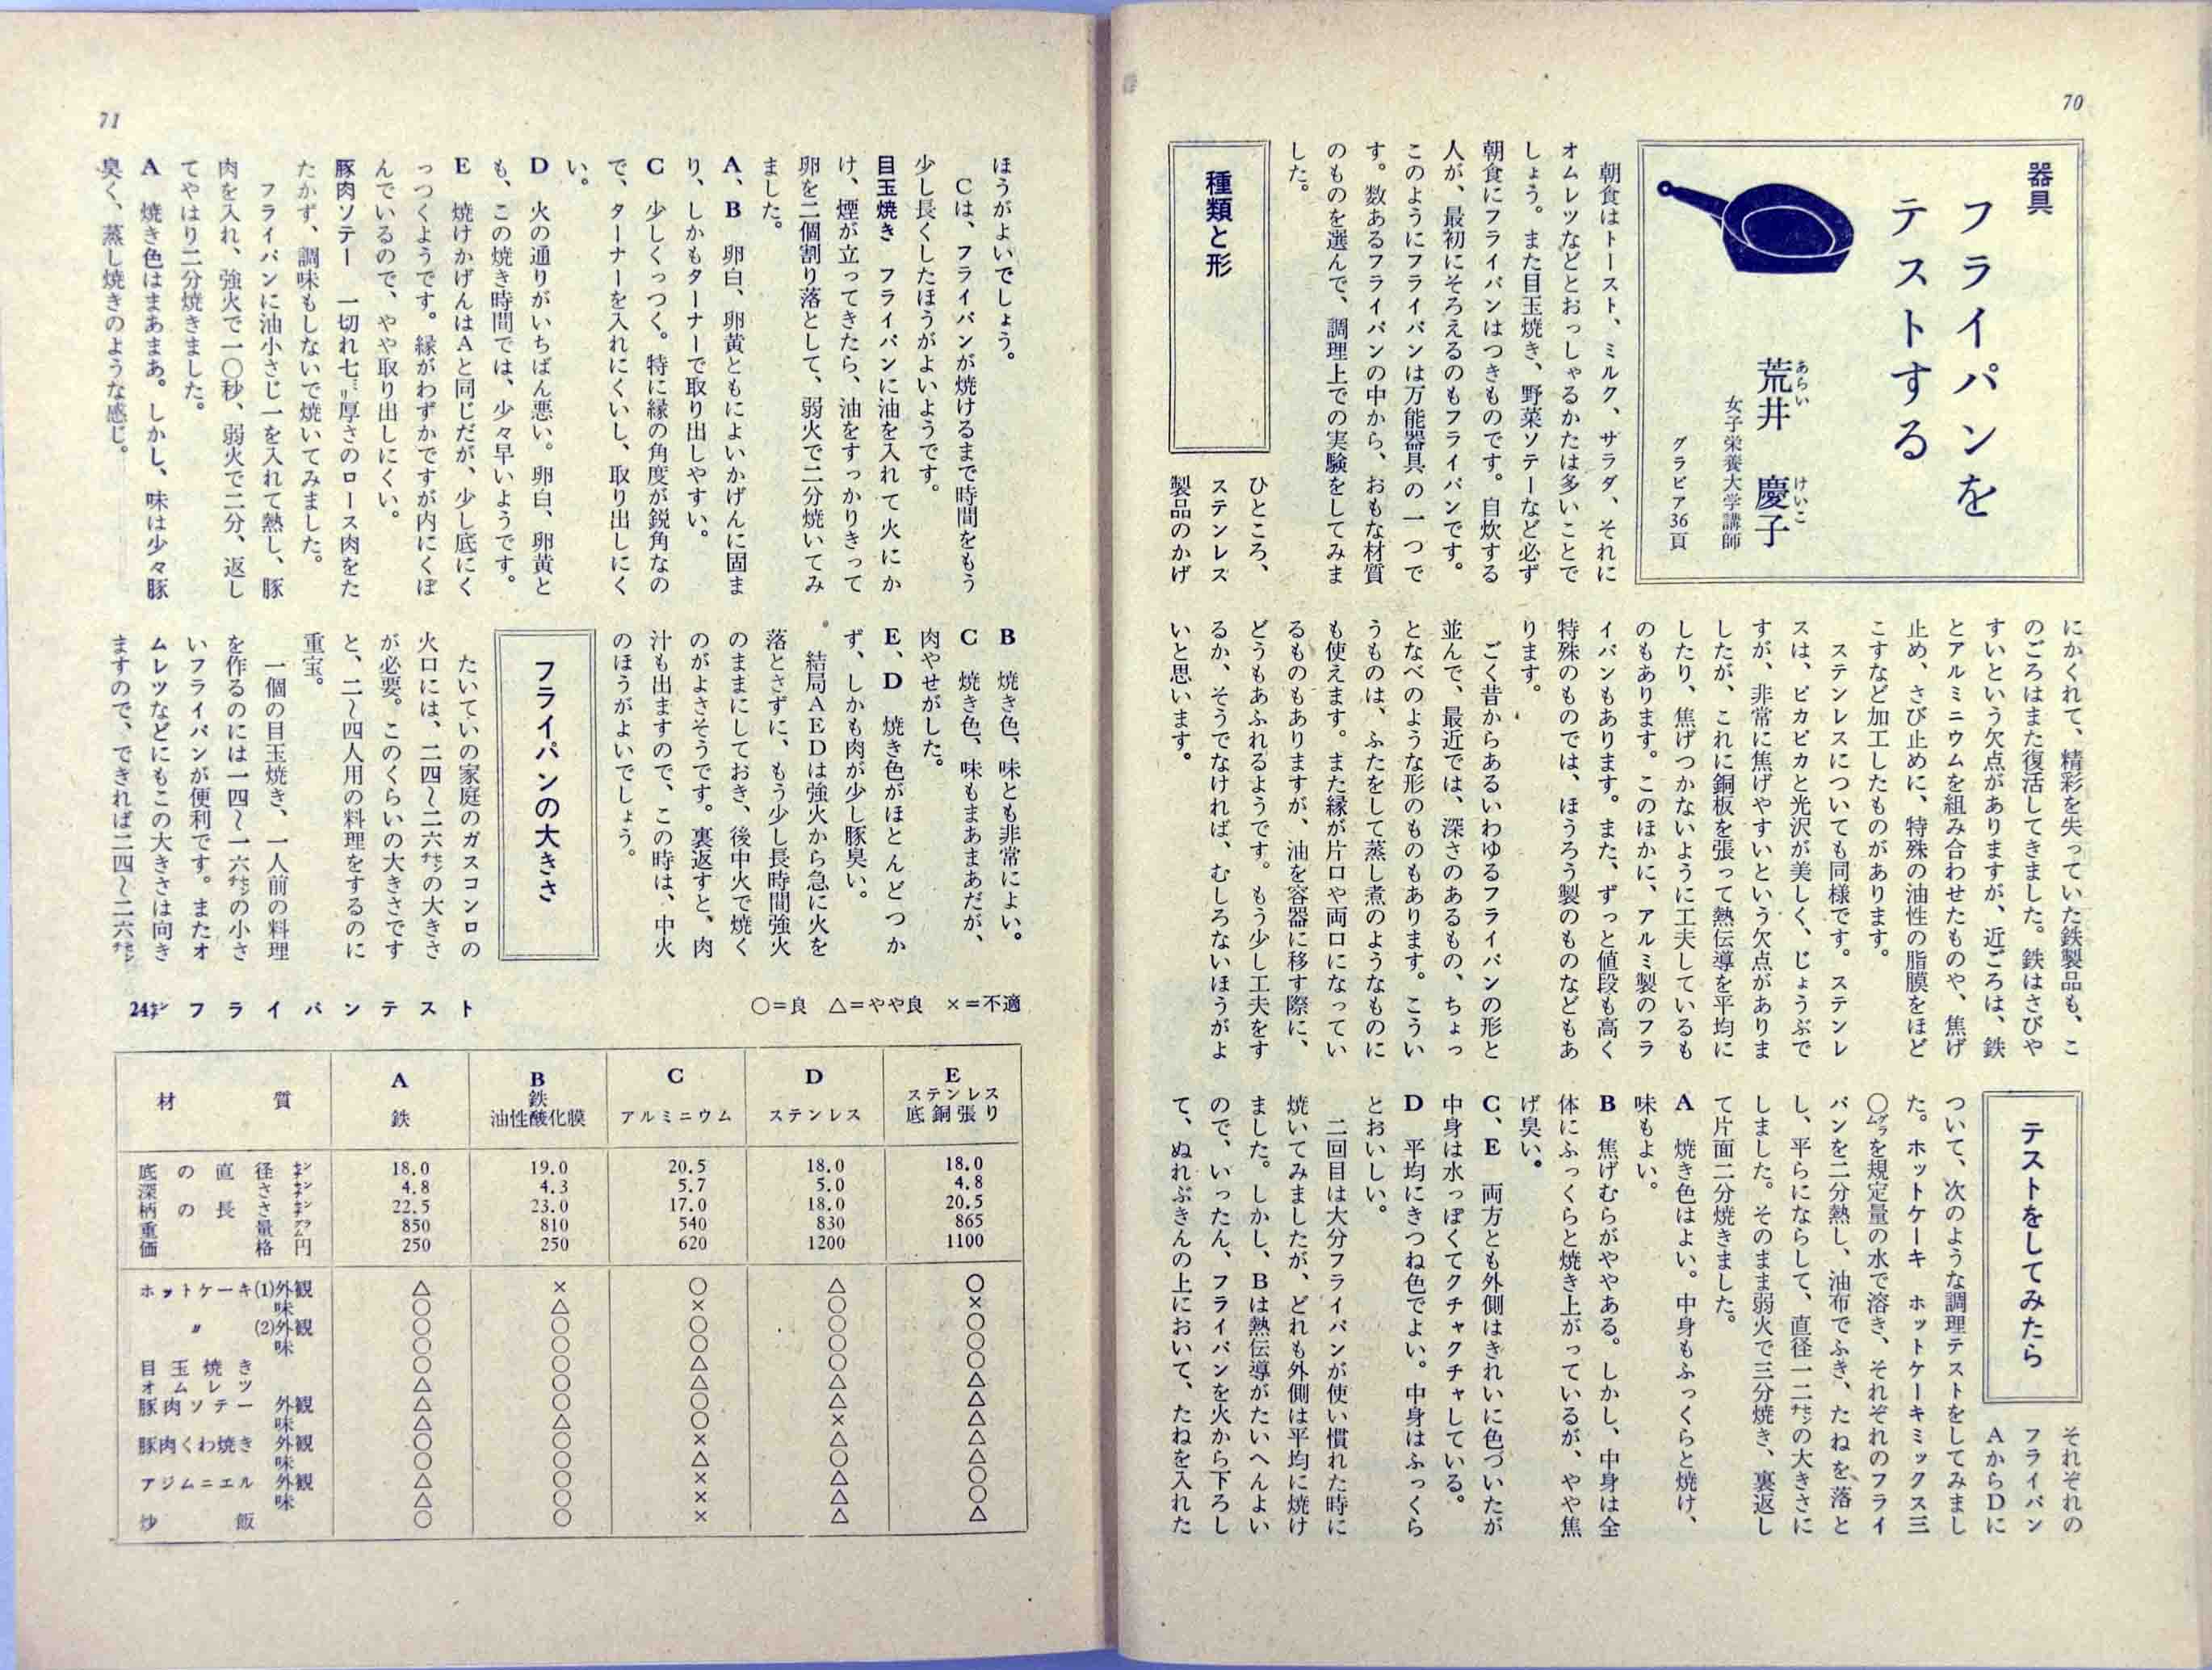 70
器具
フライパンを
テストする
荒井 慶子
あらい けいこ
女子栄養大学講師
グラビア36頁
朝食はトースト、ミルク、サラダ、それに
オムレツなどとおっしゃるかたは多いことで
しょう。また目玉焼き、野菜ソテーなど必ず
朝食にフライパンはつきものです。自炊する
人が、最初にそろえるのもフライパンです。
このようにフライパンは万能器具の一つで
す。数あるフライパンの中から、おもな材質
のものを選んで、調理上での実験をしてみま
した。
種類と形
ひところ、
ステンレス
製品のかげ
にかくれて、精彩を失っていた鉄製品も、こ
のごろはまた復活してきました。鉄はさびや
すいという欠点がありますが、近ごろは、鉄
とアルミニウムを組み合わせたものや、焦げ
止め、さび止めに、特殊の油性の脂膜をほど
こすなど加工したものがあります。
ステンレスについても同様です。ステンレ
スは、ピカピカと光沢が美しく、じょうぶで
すが、非常に焦げやすいという欠点がありま
したが、これに銅板を張って熱伝導を平均に
したり、焦げつかないように工夫しているも
のもあります。このほかに、アルミ製のフラ
イパンもあります。また、ずっと値段も高く
特殊のものでは、ほうろう製のものなどもあ
ります。
ごく昔からあるいわゆるフライパンの形と
並んで、最近では、深さのあるもの、ちょっ
となべのような形のものもあります。こうい
うものは、ふたをして蒸し煮のようなものに
も使えます。また縁が片口や両口になってい
るものもありますが、油を容器に移す際に、
どうもあふれるようです。もう少し工夫をす
るか、そうでなければ、むしろないほうがよ
いと思います。
テストをしてみたら
それぞれの
フライパン
AからDに
ついて、次のような調理テストをしてみまし
た。ホットケーキ ホットケーキミックス三
〇グラを規定量の水で溶き、それぞれのフライ
パンを二分熱し、油布でふき、たねを落と
し、平らにならして、直径一二センチの大きさに
しました。そのまま弱火で三分焼き、裏返し
て片面二分焼きました。
A 焼き色はよい。中身もふっくらと焼け、
味もよい。
B 焦げむらがややある。しかし、中身は全
体にふっくらと焼き上がっているが、やや焦
げ臭い。
C、E 両方とも外側はきれいに色づいたが
中身は水っぽくてクチャクチャしている。
D 平均にきつね色でよい。中身はふっくら
とおいしい。
二回目は大分フライパンが使い慣れた時に
焼いてみましたが、どれも外側は平均に焼け
ました。しかし、Bは熱伝導がたいへんよい
ので、いったん、フライパンを火から下ろし
て、ぬれぶきんの上において、たねを入れた
71
ほうがよいでしょう。
Cは、フライパンが焼けるまで時間をもう
少し長くしたほうがよいようです。
目玉焼き フライパンに油を入れて火にか
け、煙が立ってきたら、油をすっかりきって
卵を二個割り落として、弱火で二分焼いてみ
ました。
A、B 卵白、卵黄ともによいかげんに固ま
り、しかもターナーで取り出しやすい。
C 少しくっつく。特に縁の角度が鋭角なの
で、ターナーを入れにくいし、取り出しにく
い。
D 火の通りがいちばん悪い。卵白、卵黄と
も、この焼き時間では、少々早いようです。
E 焼けかげんはAと同じだが、少し底にく
っつくようです。縁がわずかですが内にくぼ
んでいるので、やや取り出しにくい。
豚肉ソテー 一切れ七ミリ厚さのロース肉をた
たかず、調味もしないで焼いてみました。
フライパンに油小さじ一を入れて熱し、豚
肉を入れ、強火で一〇秒、弱火で二分、返し
てやはり二分焼きました。
A 焼き色はまあまあ。しかし、味は少々豚
臭く、蒸し焼きのような感じ。
B 焼き色、味とも非常によい。
C 焼き色、味もまあまあだが、
肉やせがした。
E、D 焼き色がほとんどつか
ず、しかも肉が少し豚臭い。
結局AEDは強火から急に火を
落とさずに、もう少し長時間強火
のままにしておき、後中火で焼く
のがよさそうです。裏返すと、肉
汁も出ますので、この時は、中火
のほうがよいでしょう。
フライパンの大きさ
たいていの家庭のガスコンロの
火口には、二四〜二六センチの大きさ
が必要。このくらいの大きさです
と、二〜四人用の料理をするのに
重宝。
一個の目玉焼き、一人前の料理
を作るのには一四〜一六センチの小さ
いフライパンが便利です。またオ
ムレツなどにもこの大きさは向き
ますので、できれば二四〜二六センチ
24センチ フライパンテスト
○=良 △=やや良 ×=不適
材質 A 鉄 B 鉄 油性酸化膜 C アルミニウム D ステンレス E ステンレス 底銅張り
底の直径 センチ 18.0 19.0 20.5 18.0 18.0
深さ センチ 4.8 4.3 5.7 5.0 4.8
柄の長さ センチ 22.5 23.0 17.0 18.0 20.5
重量 グラム 850 810 540 830 865
価格 円 250 250 620 1200 1100
ホットケーキ(1)外観 △ × ○ △ ○
味 ○ △ × ○ ×
〃 (2)外観 ○ ○ ○ ○ ○
味 ○ ○ ○ ○ ○
目玉焼き ○ ○ △ ○ ○
オムレツ △ ○ △ △ △
豚肉ソテー 外観 △ ○ ○ △ △
味 △ △ ○ × △
豚肉くわ焼き 外観 ○ ○ × △ △
味 ○ ○ △ ○ △
アジムニエル 外観 △ ○ × △ ○
味 △ ○ × △ ○
炒飯 ○ ○ × △ △